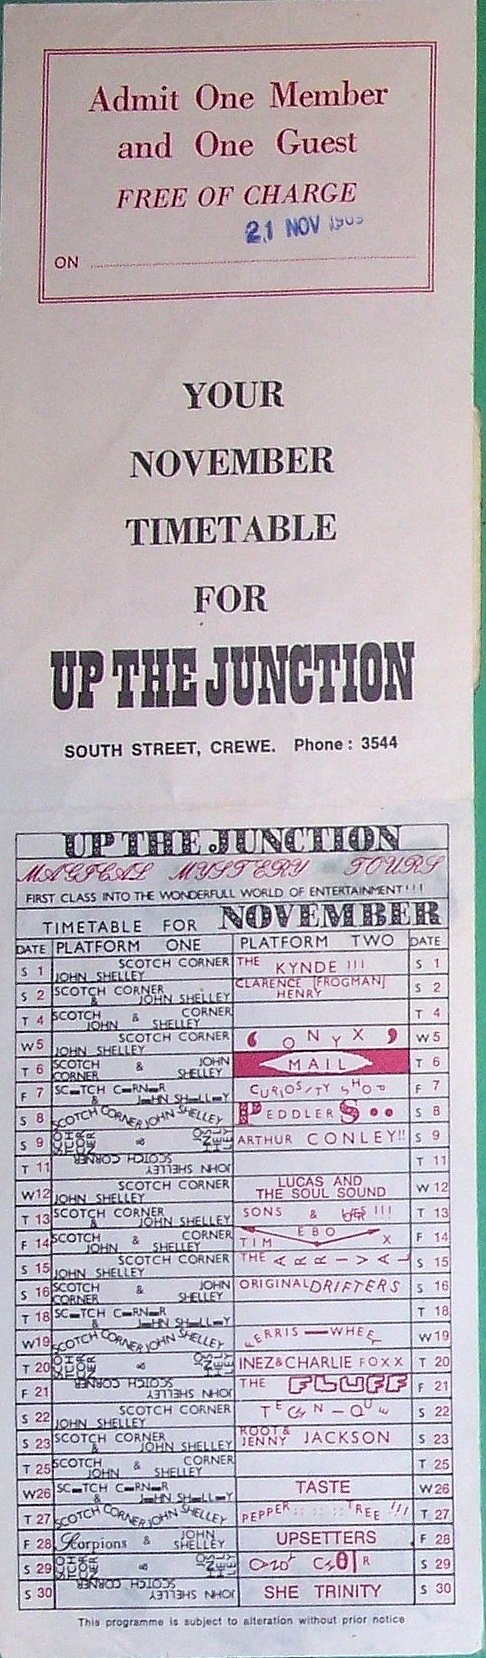 Admit One Member
and One Guest
FREE OF CHARGE
21 NOV
ON
YOUR
NOVEMBER
TIMETABLE
FOR
UP THE JUNCTION
SOUTH STREET, CREWE. Phone: 3544
UP THE JUNCTION
MAGICAL MYSTERY TOURS
FIRST CLASS INTO THE WONDERFULL WORLD OF ENTERTAINMENT!!!
TIMETABLE FOR NOVEMBER
DATE PLATFORM ONE PLATFORM TWO DATE
S 1 SCOTCH CORNER JOHN SHELLEY THE KYNDE !!! S 1
S 2 SCOTCH CORNER & JOHN SHELLEY CLARENCE [FROGMAN] HENRY S 2
T 4 SCOTCH & CORNER JOHN SHELLEY T 4
W 5 SCOTCH CORNER JOHN SHELLEY ONYX W 5
T 6 SCOTCH & JOHN CORNER SHELLEY MAIL T 6
F 7 SC-TCH C-RN-R & J-HN SH-LL-Y CURIOSITY SHOP F 7
S 8 SCOTCH CORNER JOHN SHELLEY PEDDLERS S 8
S 9 SCOTCH CORNER & JOHN SHELLEY ARTHUR CONLEY!! S 9
T 11 SCOTCH CORNER JOHN SHELLEY T 11
W 12 SCOTCH CORNER JOHN SHELLEY LUCAS AND THE SOUL SOUND W 12
T 13 SCOTCH CORNER & JOHN SHELLEY SONS & !!! T 13
F 14 SCOTCH & CORNER JOHN SHELLEY TIM EBO X F 14
S 15 SCOTCH CORNER JOHN SHELLEY THE ARRIVAL S 15
S 16 SCOTCH & JOHN CORNER SHELLEY ORIGINAL DRIFTERS S 16
T 18 SC-TCH C-RN-R & J-HN SH-LL-Y T 18
W 19 SCOTCH CORNER JOHN SHELLEY FERRIS — WHEEL W 19
T 20 SCOTCH CORNER & JOHN SHELLEY INEZ & CHARLIE FOXX T 20
F 21 SCOTCH CORNER JOHN SHELLEY THE FLUFF F 21
S 22 SCOTCH CORNER JOHN SHELLEY TECHN-QUE S 22
S 23 SCOTCH CORNER & JOHN SHELLEY ROOT & JENNY JACKSON S 23
T 25 SCOTCH & CORNER JOHN SHELLEY T 25
W 26 SC-TCH C-RN-R & J-HN SH-LL-Y TASTE W 26
T 27 SCOTCH CORNER JOHN SHELLEY PEPPER TREE !!! T 27
F 28 Skorpions & JOHN SHELLEY UPSETTERS F 28
S 29 SCOTCH CORNER & JOHN SHELLEY S 29
S 30 SCOTCH CORNER JOHN SHELLEY SHE TRINITY S 30
This programme is subject to alteration without prior notice